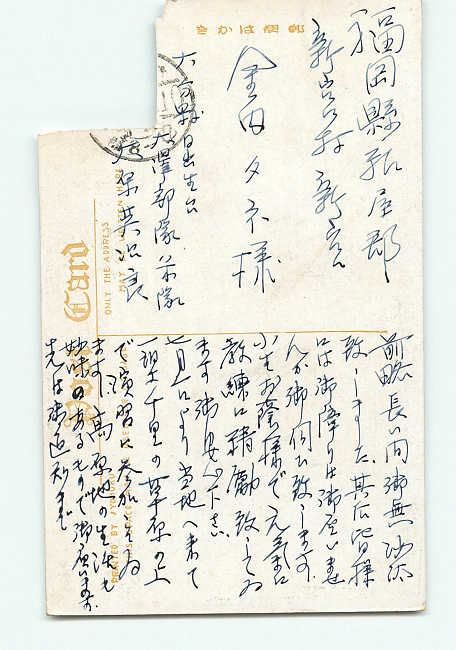 きかは便郵
福岡縣粕屋郡
新宮村新宮
金田夕ネ様
大分縣日出生台
大澤部隊
英治
前略長い間御無沙汰
致しました其后皆様
には御障りは御座いませ
んか御伺ひ致します
小生お蔭様で元気に
教練に精勵致してゐ
ます御安心下さい
七月一日より当地へ来て
一望千里の草原の上
で演習に参加してゐ
ます高原地の生活も
妙味のあるもので御座います
先は御通知まで
Card
ONLY THE ADDRESS
MAY BE WRITTEN HERE
PRINTED BY